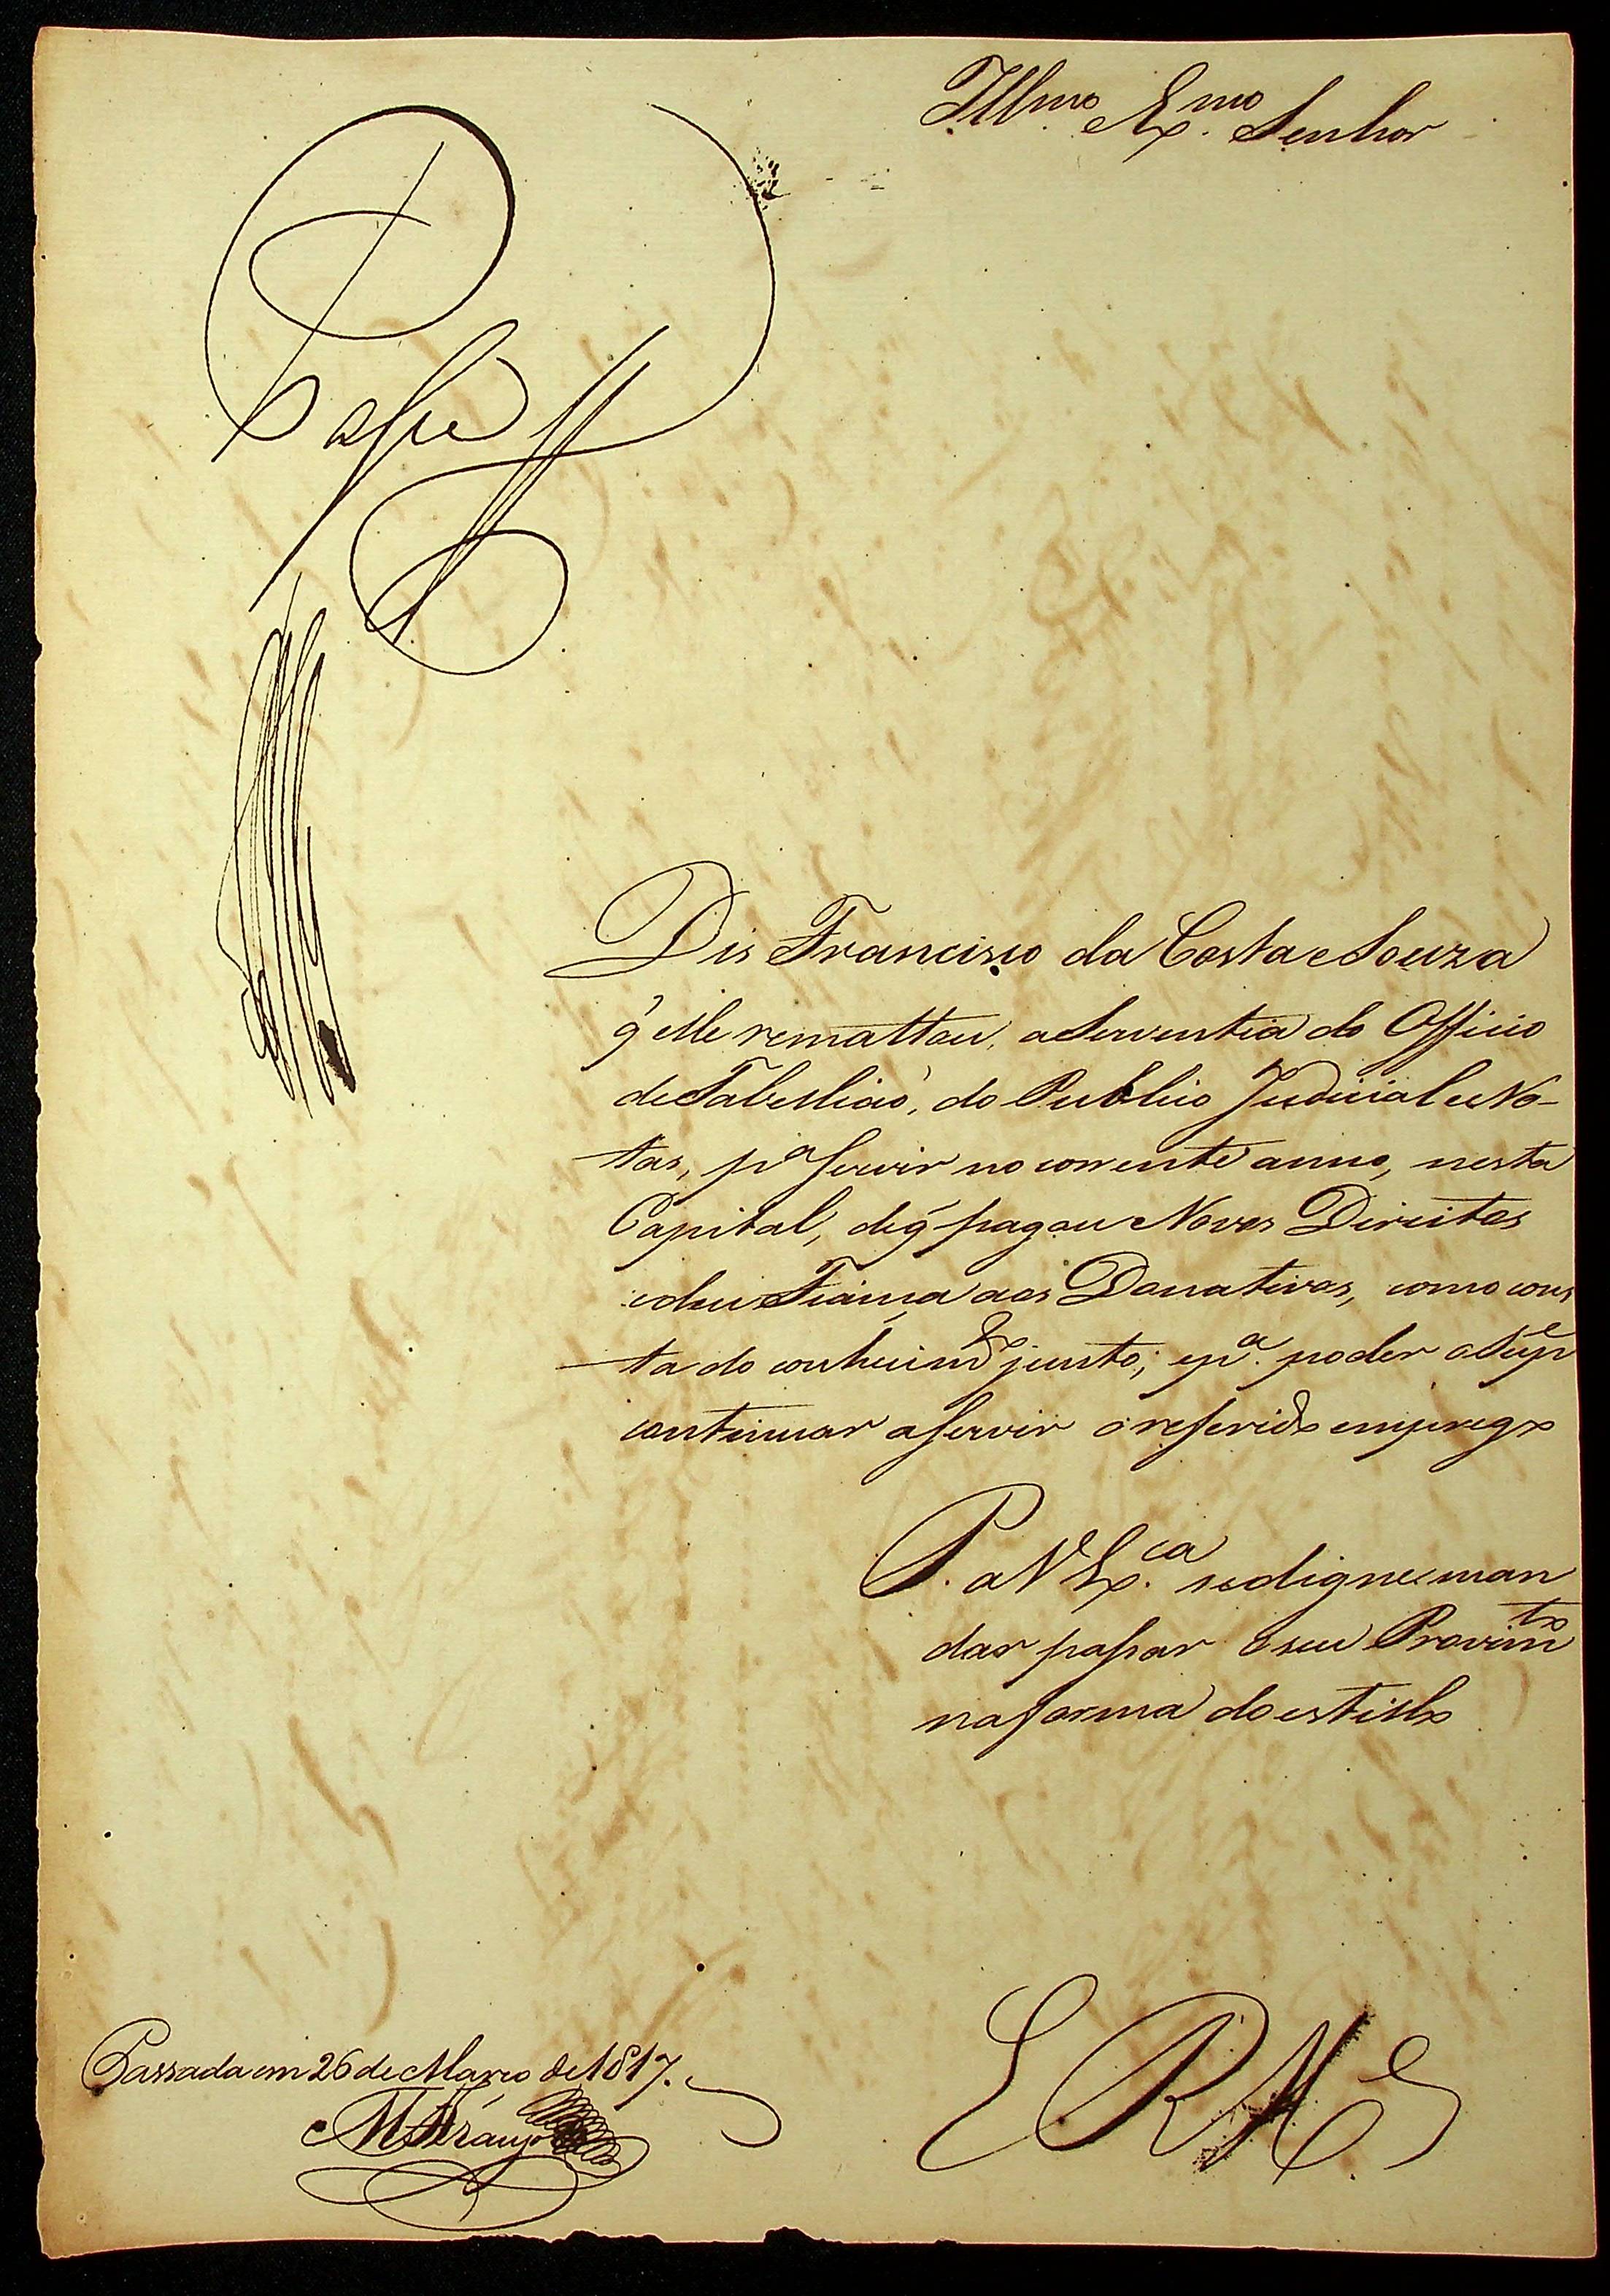 Illmo. Exmo. Senhor
Passe
Dis Francisco da Costa e Souza
q̃ elle remattou, a Serventia do Officio
de Tabelliaõ, do Publico Judicial e No-
tas, pa servir no corrente anno, nesta
Capital, de q̃ pagou Novos Direitos
e deu Fiança aos Donativos, como cons
ta do conhecimdo junto; e pa. poder o Supe
continuar a servir o referido emprego
P. a V Exca. se digne man
dar passar o seu Provimto
na forma do estillo
E R Mce
Passada em 26 de Março de 1817.
M Araujo